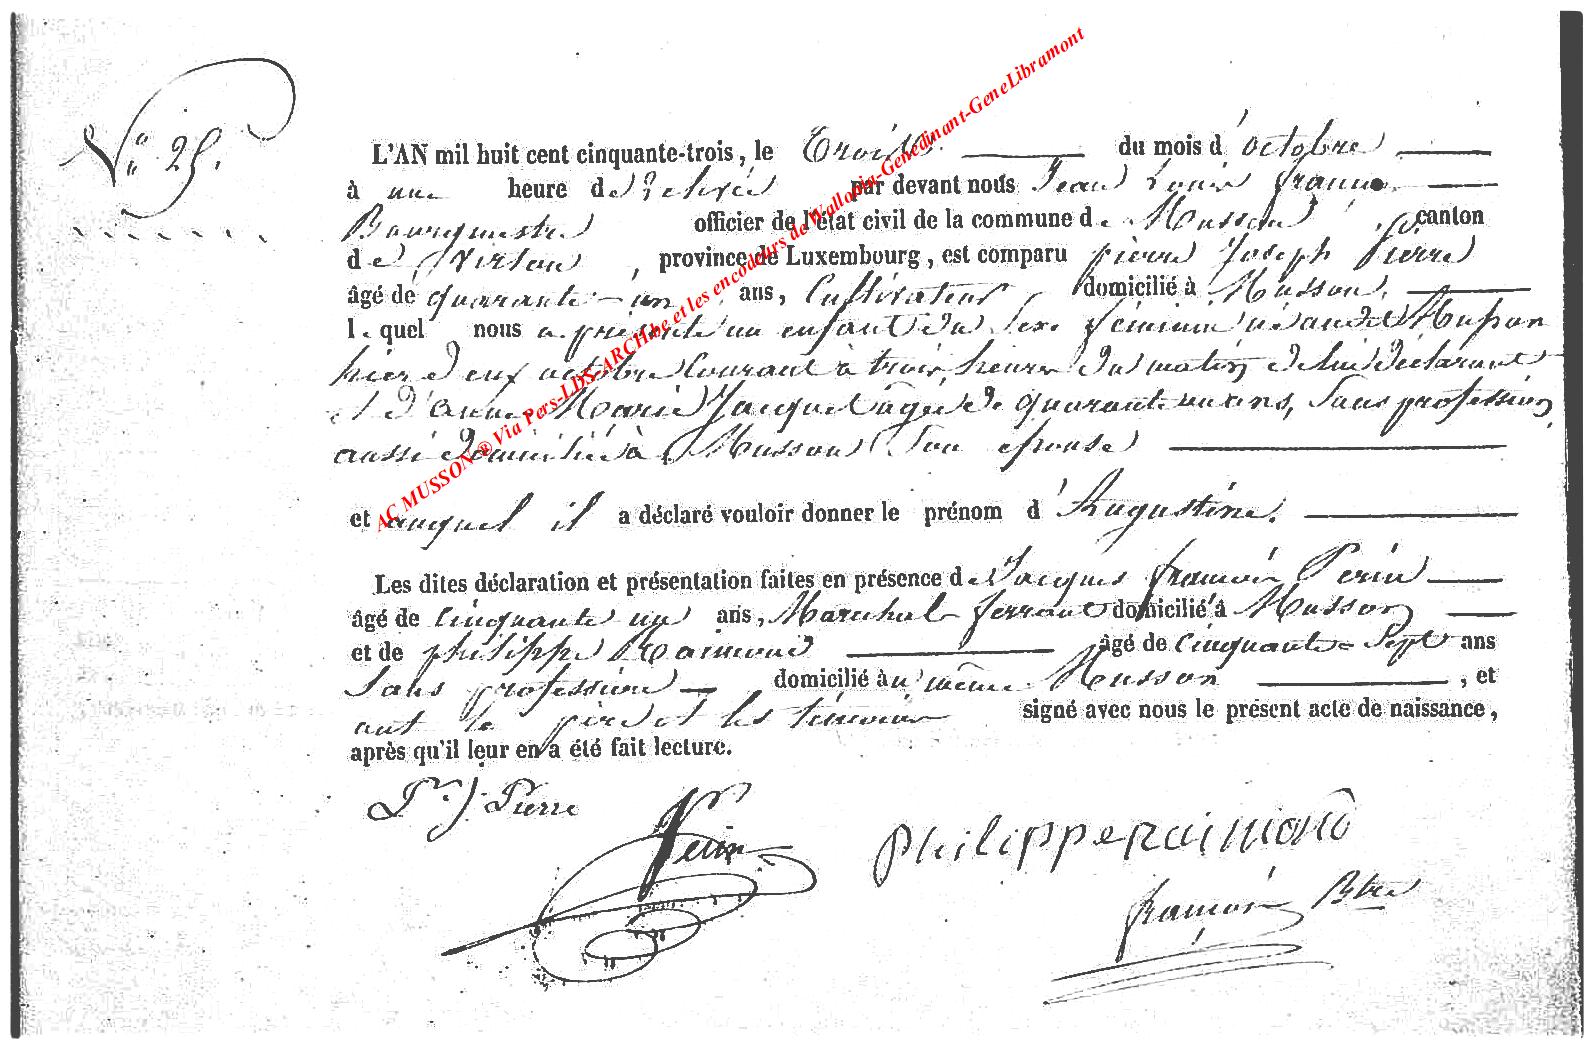 N° 25.
L'AN mil huit cent cinquante-trois, le Trois du mois d'octobre
à une heure de relevée par devant nous Jean Louis françois
Bourgmestre officier de l'état civil de la commune de Musson, canton
de Virton, province de Luxembourg, est comparu pierre Joseph Pierre
âgé de quarante-un ans, Cultivateur domicilié à Musson.
lequel nous a présenté un enfant du Sexe féminin né audit Musson
hier deux octobre Courant à trois heures du matin, de lui déclarant
et d'anne Marie Jacquet agée de quarante un ans, Sans profession,
aussi domiciliée à Musson Son épouse
et auquel il a déclaré vouloir donner le prénom d'Augustine.
Les dites déclaration et présentation faites en présence de Jacques françois Perin
âgé de Cinquante un ans, Marechal ferrant domicilié à Musson
et de philippe Raimond âgé de Cinquante-Sept ans
Sans profession domicilié au même Musson, et
ont le père et les témoins signé avec nous le présent acte de naissance,
après qu'il leur en a été fait lecture.
Pre J Pierre
Perin
Philippe raimond
françois Btre
AC MUSSON ® Via Pers-LDS-ARCH.be et les encodeurs de Wallonia-Genedinant-GeneLibramont